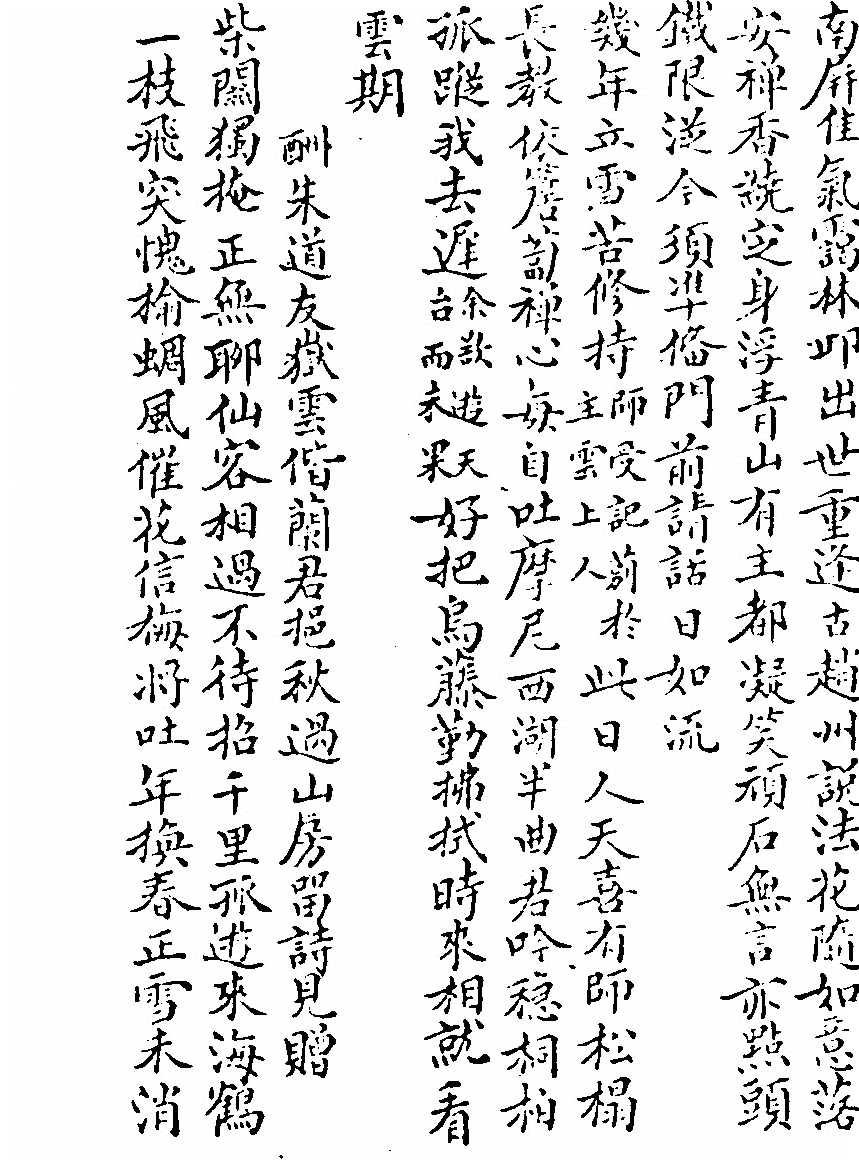 南屏佳氣靄林邱出世重逢古趙州説法花隨如意落
安禪香繞定身浮青山有主都凝笑頑石無言亦點頭
鐵限從今須準俻門前請話日如流
幾年立雪苦修持師受記莂於主雲上人此日人天喜有師松榻
長教依簷蔔禪心每自吐摩尼西湖半曲君吟穩桐柏
孤蹤我去遲余欲遊天台而未果好把烏藤勤拂拭時來相就看
雲期
酬朱道友嶽雲偕蘭君挹秋過山房留詩見贈
柴關獨掩正無聊仙客相過不待招千里孤遊來海鶴
一枝飛突愧榆蜩風催花信梅將吐年換春正雪未消